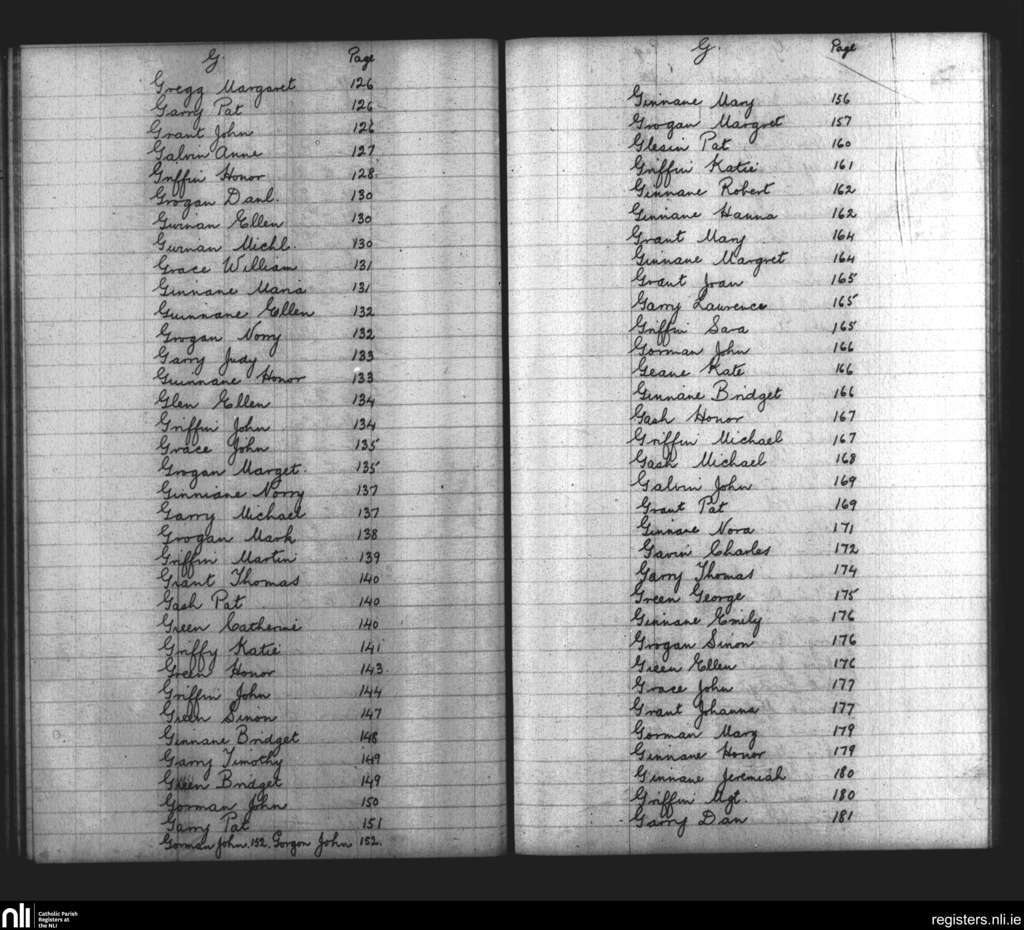 G. Page
Gregg Margaret 126
Garry Pat 126
Grant John 126
Galvin Anne 127
Griffin Honor 128
Grogan Danl. 130
Gurnan Ellen 130
Gurnan Michl. 130
Grace William 131
Ginnane Maria 131
Guinnane Ellen 132
Grogan Norry 132
Garry Judy 133
Guinnane Honor 133
Glen Ellen 134
Griffin John 134
Grace John 135
Grogan Marget. 135
Ginniane Norry 137
Garry Michael 137
Grogan Mark 138
Griffin Martin 139
Grant Thomas 140
Gash Pat 140
Green Catherine 140
Griffy Katie 141
Green Honor 143
Griffin John 144
Green Sinon 147
Ginnane Bridget 148
Garry Timothy 149
Green Bridget 149
Gorman John 150
Garry Pat 151
Gorman John. 152. Gorgon John 152.
G. Page
Ginnane Mary 156
Grogan Margret 157
Glesin Pat 160
Griffin Katie 161
Ginnane Robert 162
Ginnane Hanna 162
Grant Mary 164
Ginnane Margret 164
Grant Joan 165
Garry Laurence 165
Griffin Sara 165
Gorman John 166
Geane Kate 166
Ginnane Bridget 166
Gash Honor 167
Griffin Michael 167
Gash Michael 168
Galvin John 169
Grant Pat 169
Ginnane Nora 171
Gavin Charles 172
Garry Thomas 174
Green George 175
Ginnane Emily 176
Grogan Sinon 176
Green Ellen 176
Grace John 177
Grant Johanna 177
Gorman Mary 179
Ginnane Honor 179
Ginnane Jeremiah 180
Griffin Mgt. 180
Garry Dan 181
nli Catholic Parish
Registers at
the NLI
registers.nli.ie